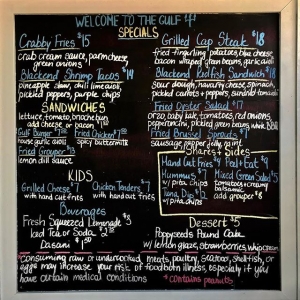 WELCOME TO THE GULF
SPECIALS
Crabby Fries $15
crab cream sauce, parm cheese,
green onions
Blackened Shrimp Tacos $14
pineapple slaw, chili lime aioli,
pickled peppers, purple chips
SANDWICHES
lettuce, tomato, brioche bun
add cheese or bacon
Gulf Burger
Fried Chicken
house garlic aioli
spicy buttermilk
Fried Grouper
lemon dill sauce
KIDS
Grilled Cheese $7
Chicken Tenders $7
with hand cut fries
with hand cut fries
Beverages
Fresh Squeezed Lemonade $3
Iced Tea or Soda
Dasani
Grilled Cap Steak $18
fried fingerling potatoes, blue cheese,
bacon wrapped green beans, garlic aioli
Blackened Redfish Sandwich $18
sour dough, havarty cheese, spinach,
pickled carrots + peppers,
Fried Oyster Salad $17
orzo, baby kale, tomatoes, red onions,
pepperoncini, pickled green beans
Fried Brussel Sprouts
sausage, pepper jelly
Shares + Sides
Hand Cut Fries $4
Peel + Eat $9
Hummus $7
w/ pita chips
Mixed Green Salad $5
tomatoes + creamy
balsamic
Tuna Dip
w/ pita chips
add grouper $8
Dessert $5
Poppyseed Pound Cake
w/ lemon glaze, strawberries, whip cream
consuming raw or undercooked meats, poultry, seafood, shellfish, or
eggs may increase your risk of foodborn illness, especially if you
have certain medical conditions
+ contains peanuts